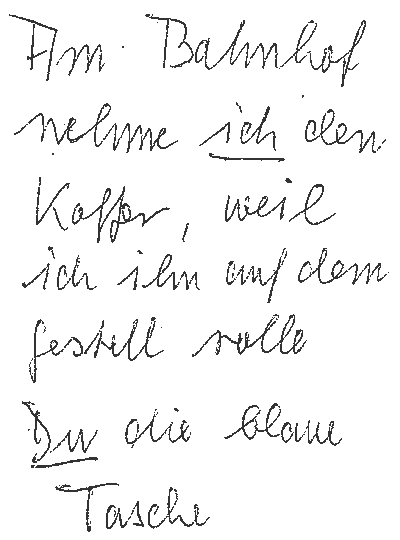 Am Bahnhof
nehme ich den
Koffer, weil
ich ihn auf dem
gestell rolle
Du die blaue
Tasche